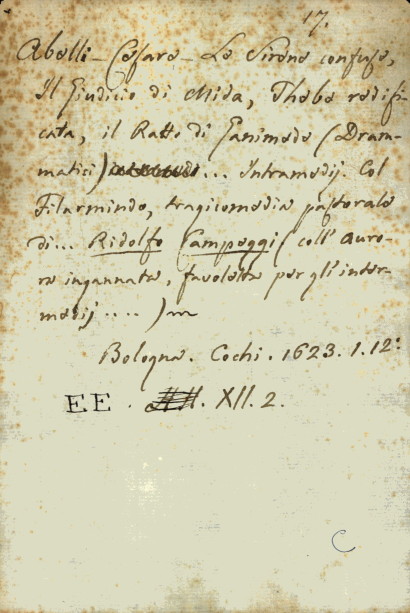 17.
Abelli - Cesare - Le Sirene confuse,
Il Giudicio di Mida, Thebe redifi-
cata, il Ratto di Ganimede (Dram-
matici) ... Intramedij. Col
Filarmindo, tragicomedia pastorale
di... Ridolfo Campeggi (coll' Auro-
ra ingannata, favoletta per gl'inter-
medij ....) in
Bologna. Cochi. 1623. 1. 12:
EE. XII. 2.
C